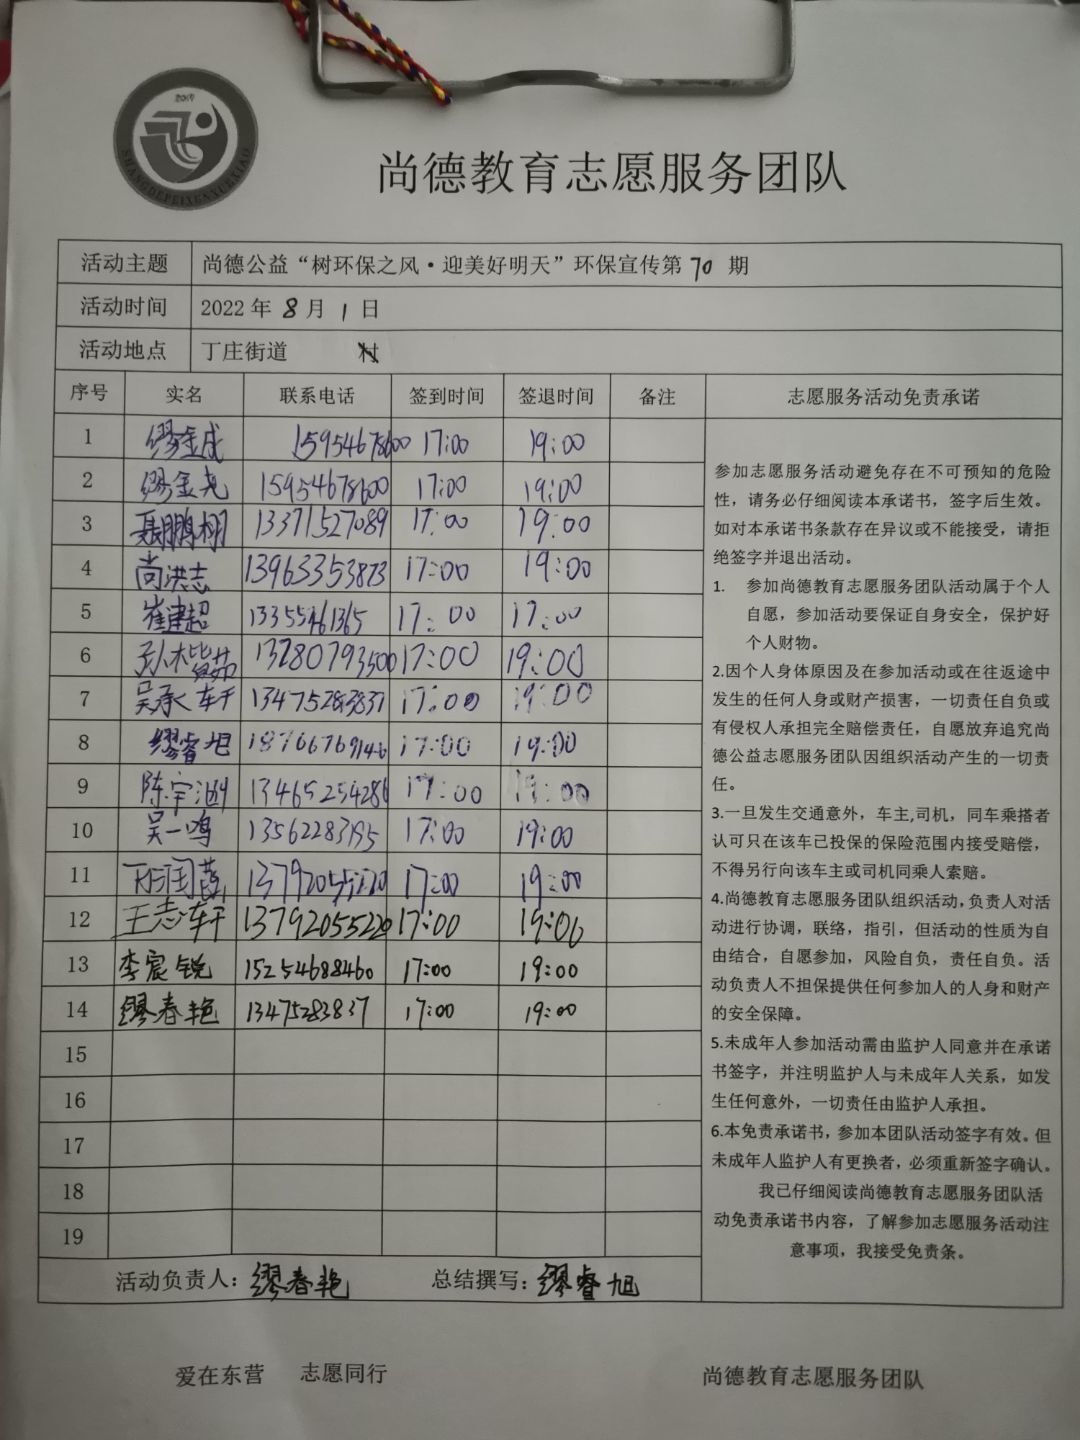 2007
SHANGDEPEIXUNXUEXIAO
尚德教育志愿服务团队
活动主题 尚德公益“树环保之风·迎美好明天”环保宣传第70期
活动时间 2022年8月1日
活动地点 丁庄街道 村
序号 实名 联系电话 签到时间 签退时间 备注 志愿服务活动免责承诺
1 缪金成 15954678600 17:00 19:00
2 缪金尧 15954678600 17:00 19:00
3 聂鹏栩 13371527089 17:00 19:00
4 尚洪志 13963353873 17:00 19:00
5 崔建超 13355461365 17:00 17:00
6 13280793500 17:00 19:00
7 吴承轩 13475283837 17:00 19:00
8 缪睿旭 18766769146 17:00 19:00
9 陈宇 13465254286 17:00 19:00
10 吴一鸣 13562283195 17:00 19:00
11 17:00 19:00
12 王志轩 13792055220 17:00 19:00
13 李宸锐 15254688460 17:00 19:00
14 缪春艳 13475283837 17:00 19:00
15
16
17
18
19
参加志愿服务活动避免存在不可预知的危险
性，请务必仔细阅读本承诺书，签字后生效。
如对本承诺书条款存在异议或不能接受，请拒
绝签字并退出活动。
1. 参加尚德教育志愿服务团队活动属于个人
自愿，参加活动要保证自身安全，保护好
个人财物。
2.因个人身体原因及在参加活动或在往返途中
发生的任何人身或财产损害，一切责任自负或
有侵权人承担完全赔偿责任，自愿放弃追究尚
德公益志愿服务团队因组织活动产生的一切责
任。
3.一旦发生交通意外，车主,司机，同车乘搭者
认可只在该车已投保的保险范围内接受赔偿，
不得另行向该车主或司机同乘人索赔。
4.尚德教育志愿服务团队组织活动，负责人对活
动进行协调，联络，指引，但活动的性质为自
由结合，自愿参加，风险自负，责任自负。活
动负责人不担保提供任何参加人的人身和财产
的安全保障。
5.未成年人参加活动需由监护人同意并在承诺
书签字，并注明监护人与未成年人关系，如发
生任何意外，一切责任由监护人承担。
6.本免责承诺书，参加本团队活动签字有效。但
未成年人监护人有更换者，必须重新签字确认。
我已仔细阅读尚德教育志愿服务团队活
动免责承诺书内容，了解参加志愿服务活动注
意事项，我接受免责条。
活动负责人：缪春艳 总结撰写：缪睿旭
爱在东营 志愿同行 尚德教育志愿服务团队